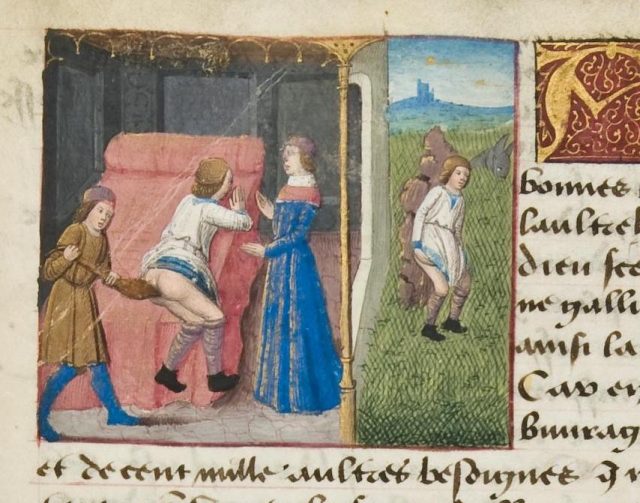 bonnes
laultre
dieu sce
ne galli
ainsi la
Car en
buurag
et de cent mille aultres besoignes